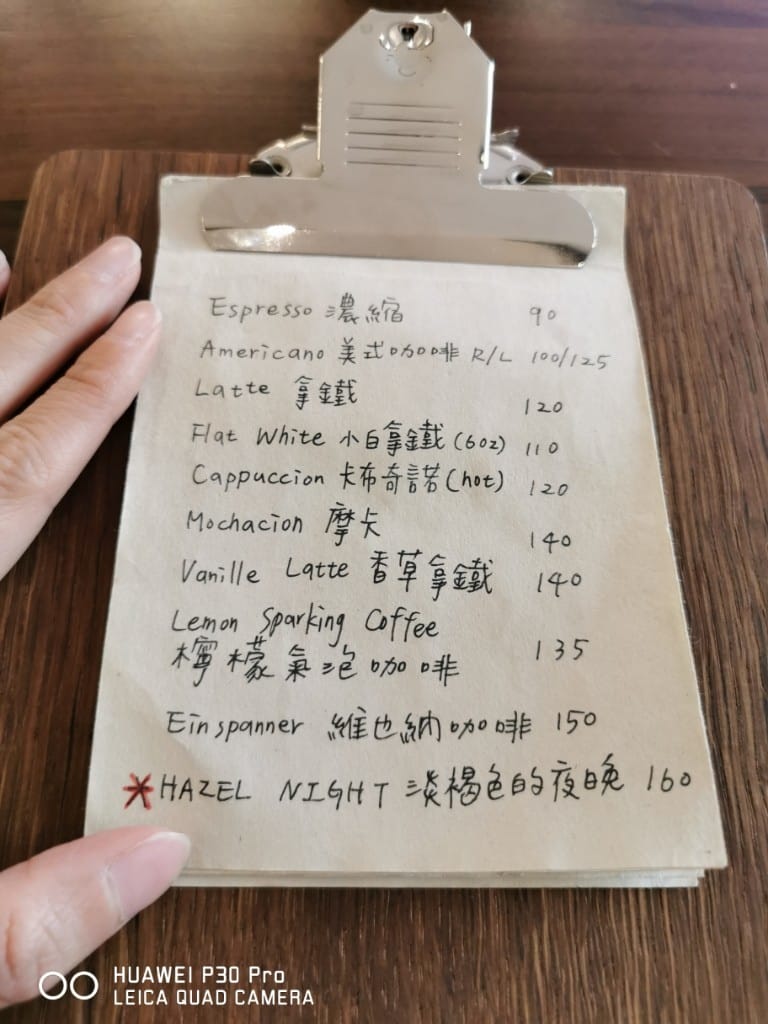 Espresso 濃縮 90
Americano 美式咖啡 R/L 100/125
Latte 拿鐵 120
Flat White 小白拿鐵(6oz) 110
Cappuccion 卡布奇諾(hot) 120
Mochacion 摩卡 140
Vanille Latte 香草拿鐵 140
Lemon Sparking Coffee
檸檬氣泡咖啡 135
Einspanner 維也納咖啡 150
*HAZEL NIGHT 淡褐色的夜晚 160
HUAWEI P30 Pro
LEICA QUAD CAMERA